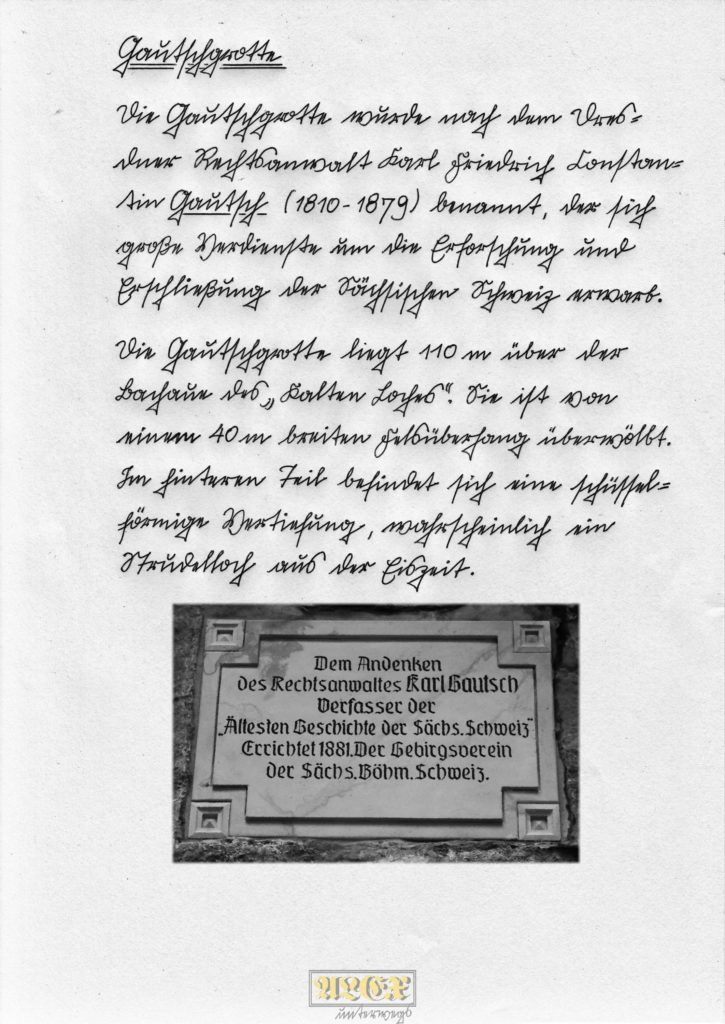 Gautschgrotte
Die Gautschgrotte wurde nach dem Dres=
dner Rechtsanwalt Karl Friedrich Constan=
tin Gautsch (1810-1879) benannt, der sich
große Verdienste um die Erforschung und
Erschließung der Sächsischen Schweiz erwarb.
Die Gautschgrotte liegt 110 m über der
Bachaue des „Kalten Loches“. Sie ist von
einem 40 m breiten Felsüberhang überwölbt.
Im hinteren Teil befindet sich eine schüssel=
förmige Vertiefung, wahrscheinlich ein
Strudelloch aus der Eiszeit.
Dem Andenken
des Rechtsanwaltes Karl Gautsch
Verfasser der
„Ältesten Geschichte der Sächs. Schweiz“
Errichtet 1881. Der Gebirgsverein
der Sächs. Böhm. Schweiz.
ALEX
unterwegs